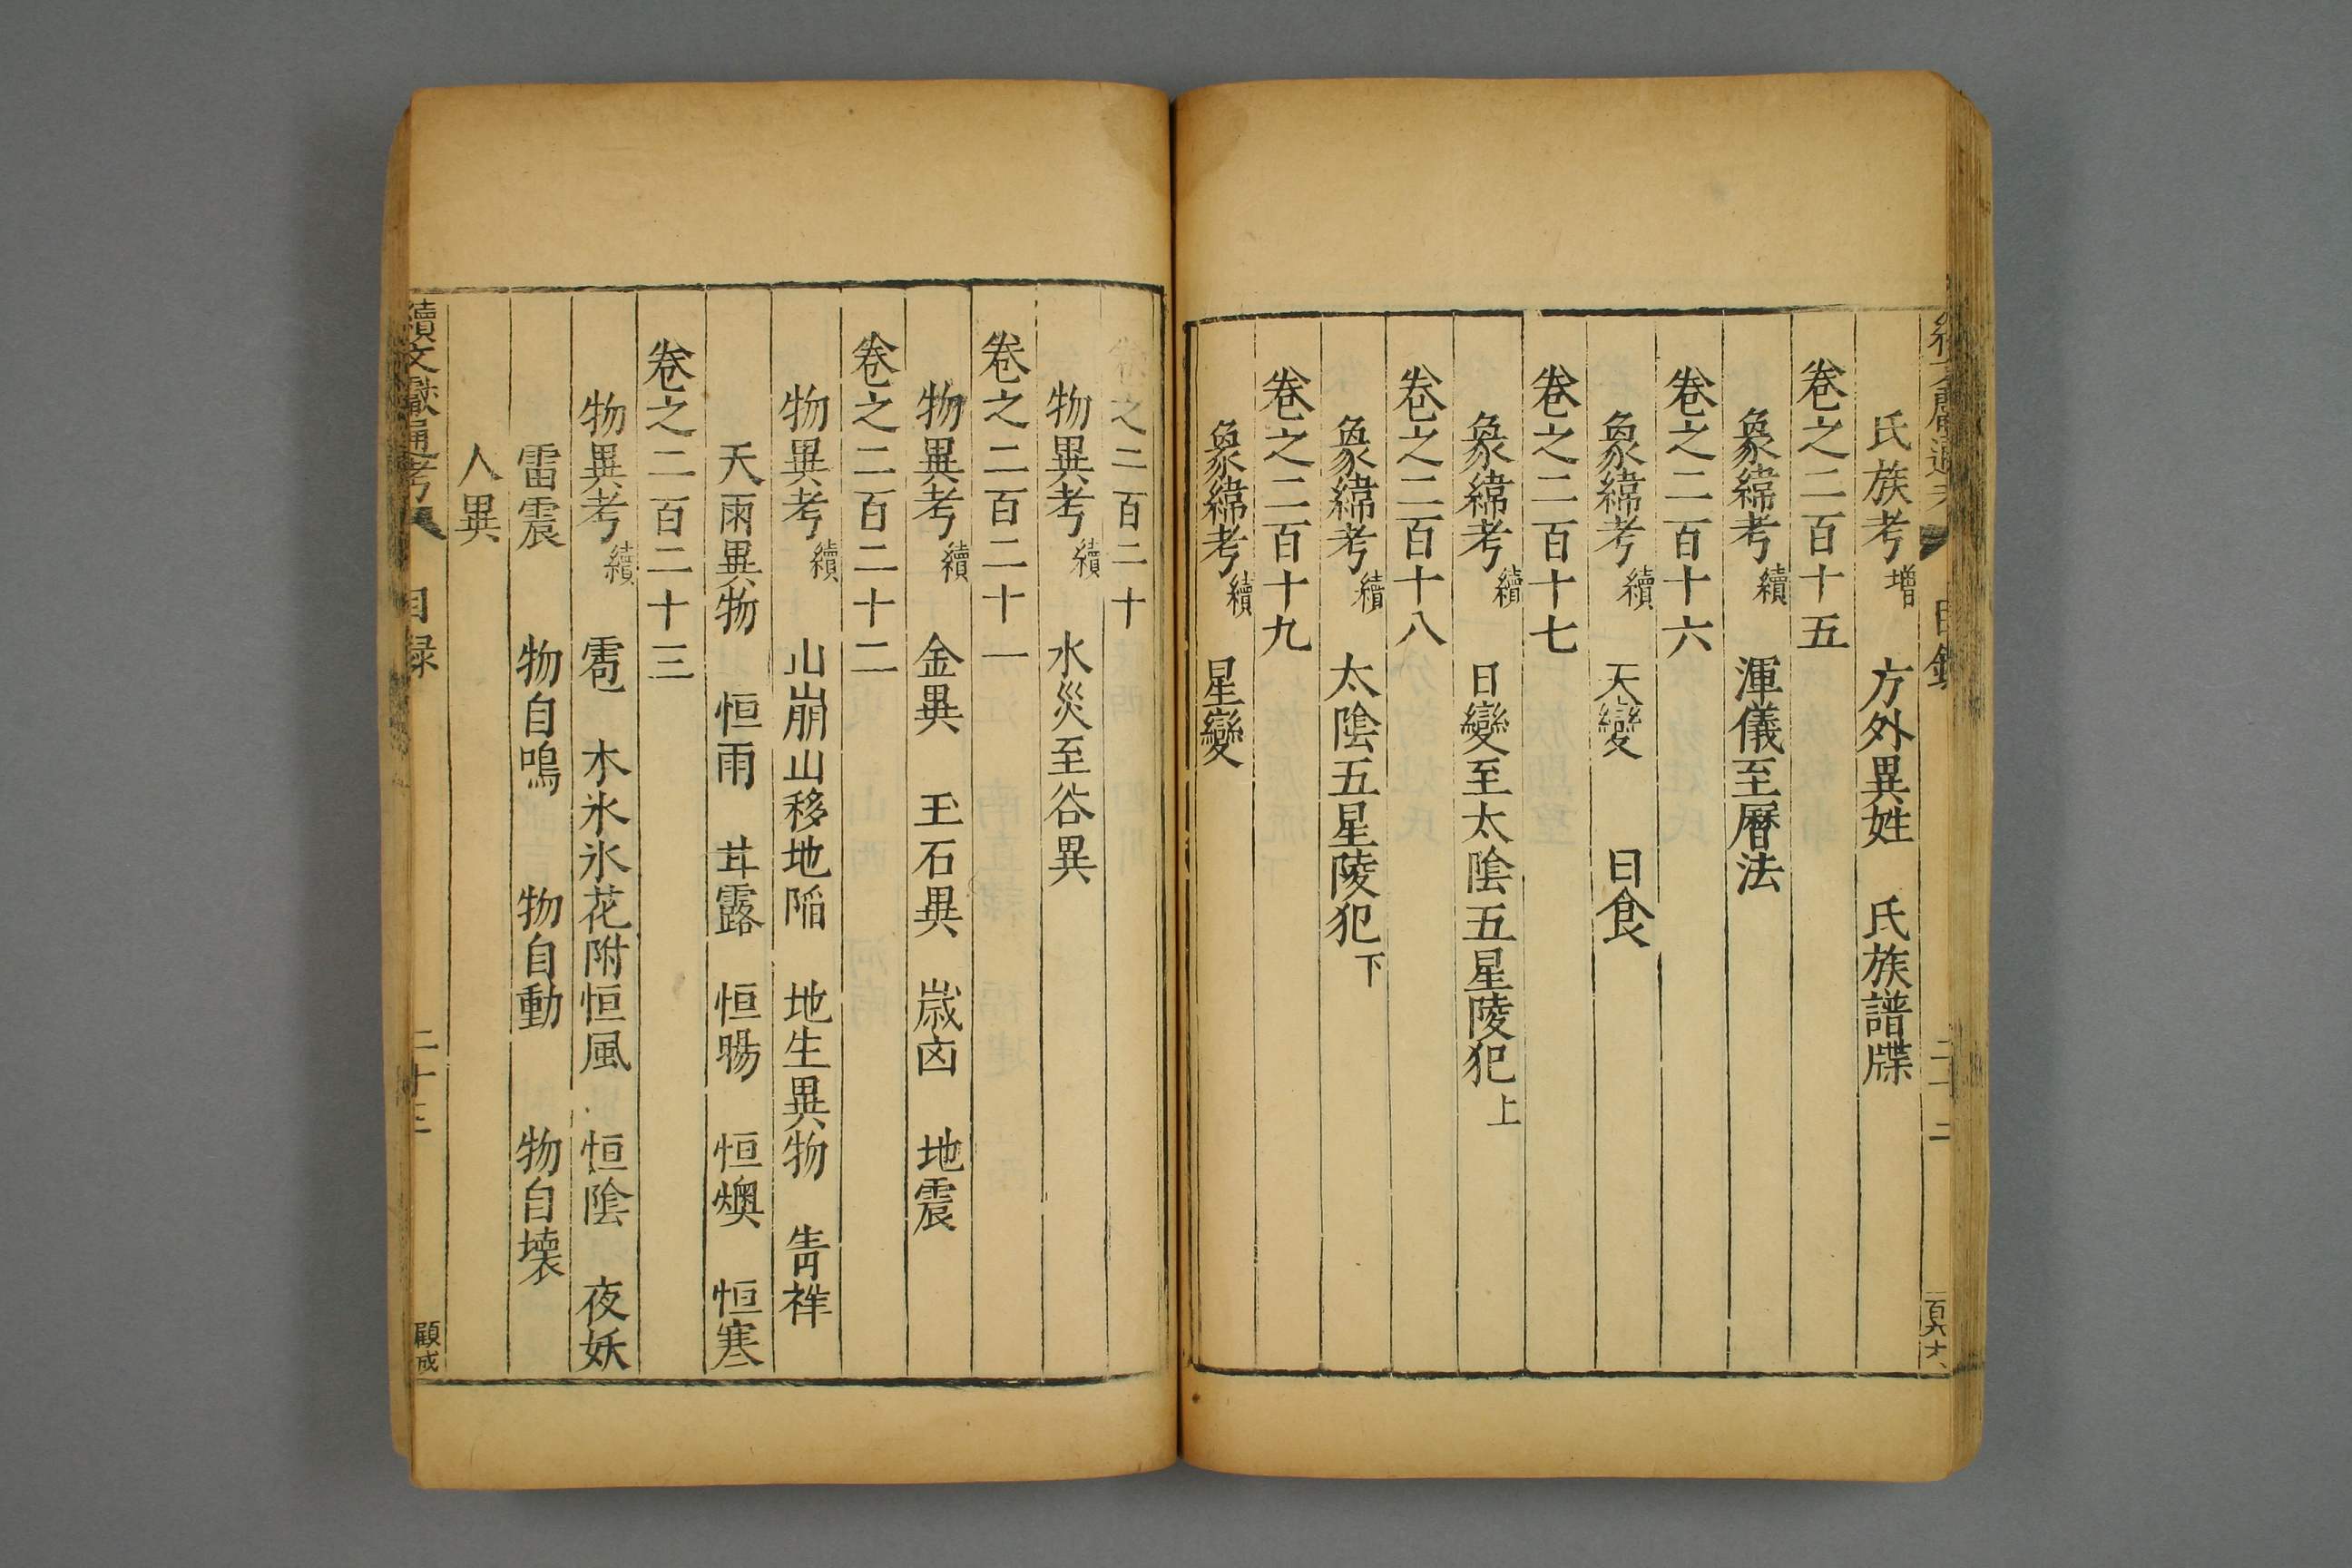 氏族考增 方外異姓 氏族譜牒
卷之二百十五
象緯考續 渾儀至曆法
卷之二百十六
象緯考續 天變 日食
卷之二百十七
象緯考續 日變至太陰五星陵犯上
卷之二百十八
象緯考續 太陰五星陵犯下
卷之二百十九
象緯考續 星變
卷之二百二十
物異考續 水災至谷異
卷之二百二十一
物異考續 金異 玉石異 歲凶 地震
卷之二百二十二
物異考續 山崩山移地陷 地生異物 青祥
天雨異物 恒雨 甘露 恒暘 恒燠 恒寒
卷之二百二十三
物異考續 雹 木氷氷花附恒風 恒陰 夜妖
雷震 物自鳴 物自動 物自壊
人異
續文獻通考 目録 二十三 顧成